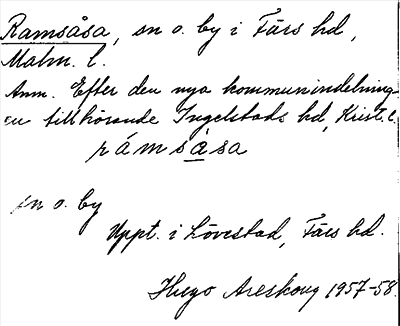 Ramsåsa, sn o. by i Färs hd,
Malm. l.
Anm. Efter den nya kommunindelning-
en tillhörande Ingelstads hd, Krist. l.
rámsåsa
sn o. by
Uppt. i Lövestad, Färs hd.
Hugo Areskoug 1957-58.